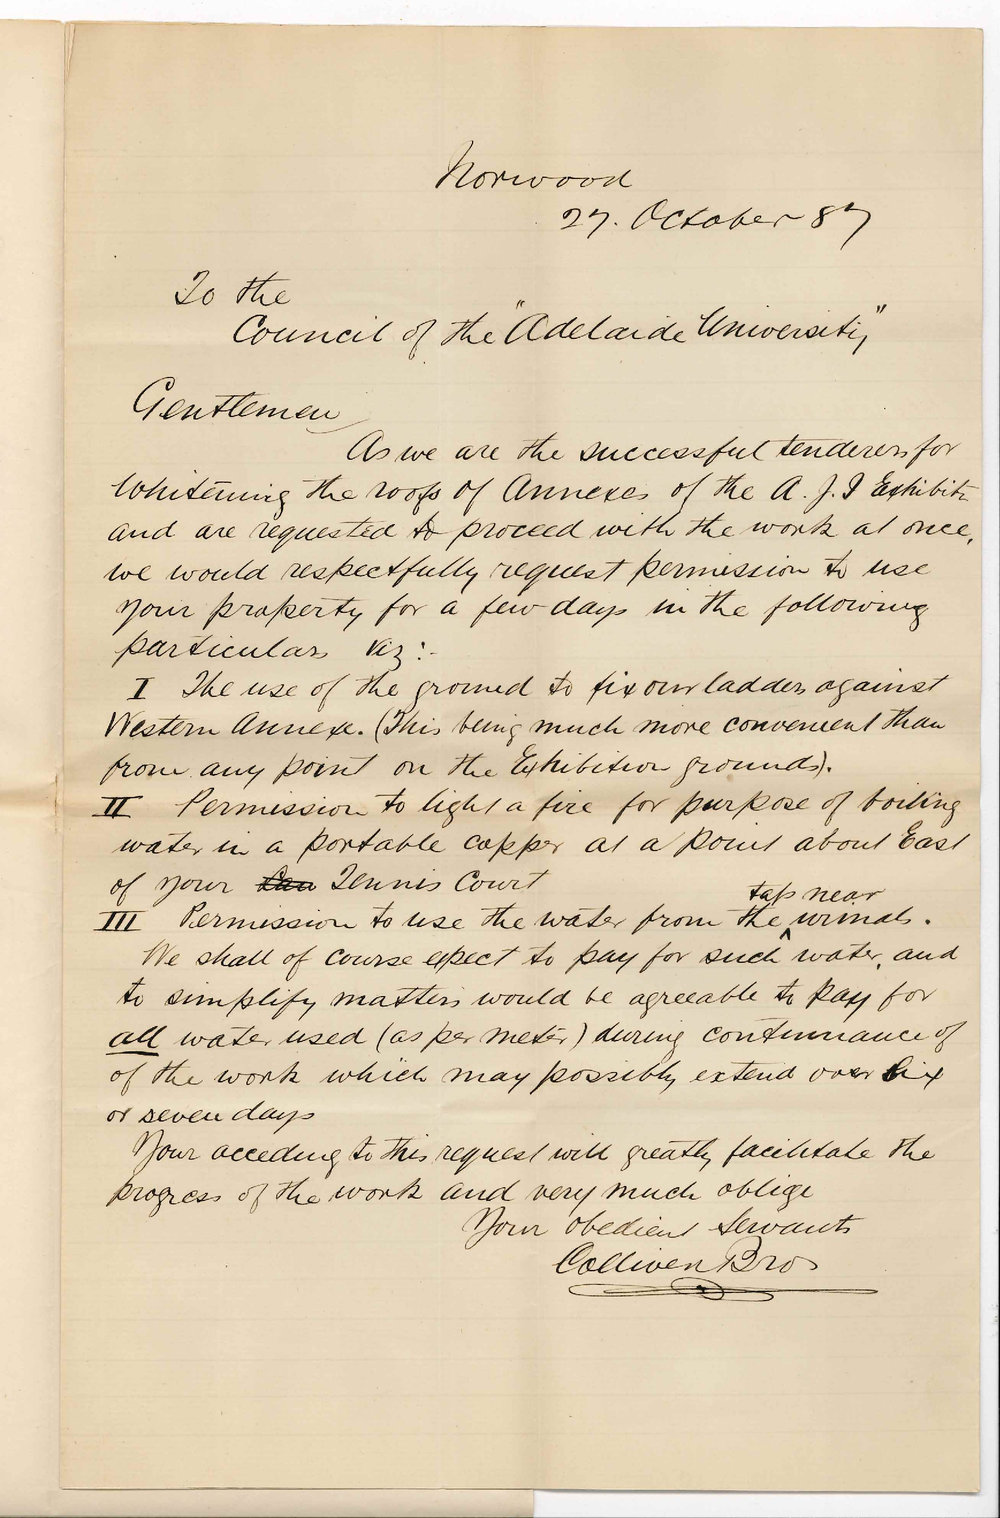 Norwood
27. October 87
To the
Council of the "Adelaide University"
Gentlemen
As we are the successful tenderers for
Whitening the roofs of Annexes of the A. J. I Exhibitn
and are requested to proceed with the work at once,
we would respectfully request permission to use
your property for a few days in the following
particulars viz:-
I The use of the ground to fix our ladders against
Western Annexe. (This being much more convenient than
from any point on the Exhibition grounds).
II Permission to light a fire for purpose of boiling
water in a portable copper at a point about East
of your Tennis Court
III Permission to use the water from the tap near urinals.
We shall of course expect to pay for such water, and
to simplify matters would be agreeable to pay for
all water used (as per meter) during continuance of
of the work which may possibly extend over six
or seven days
Your acceding to this request will greatly facilitate the
progress of the work and very much oblige
Your obedient Servants
Bros